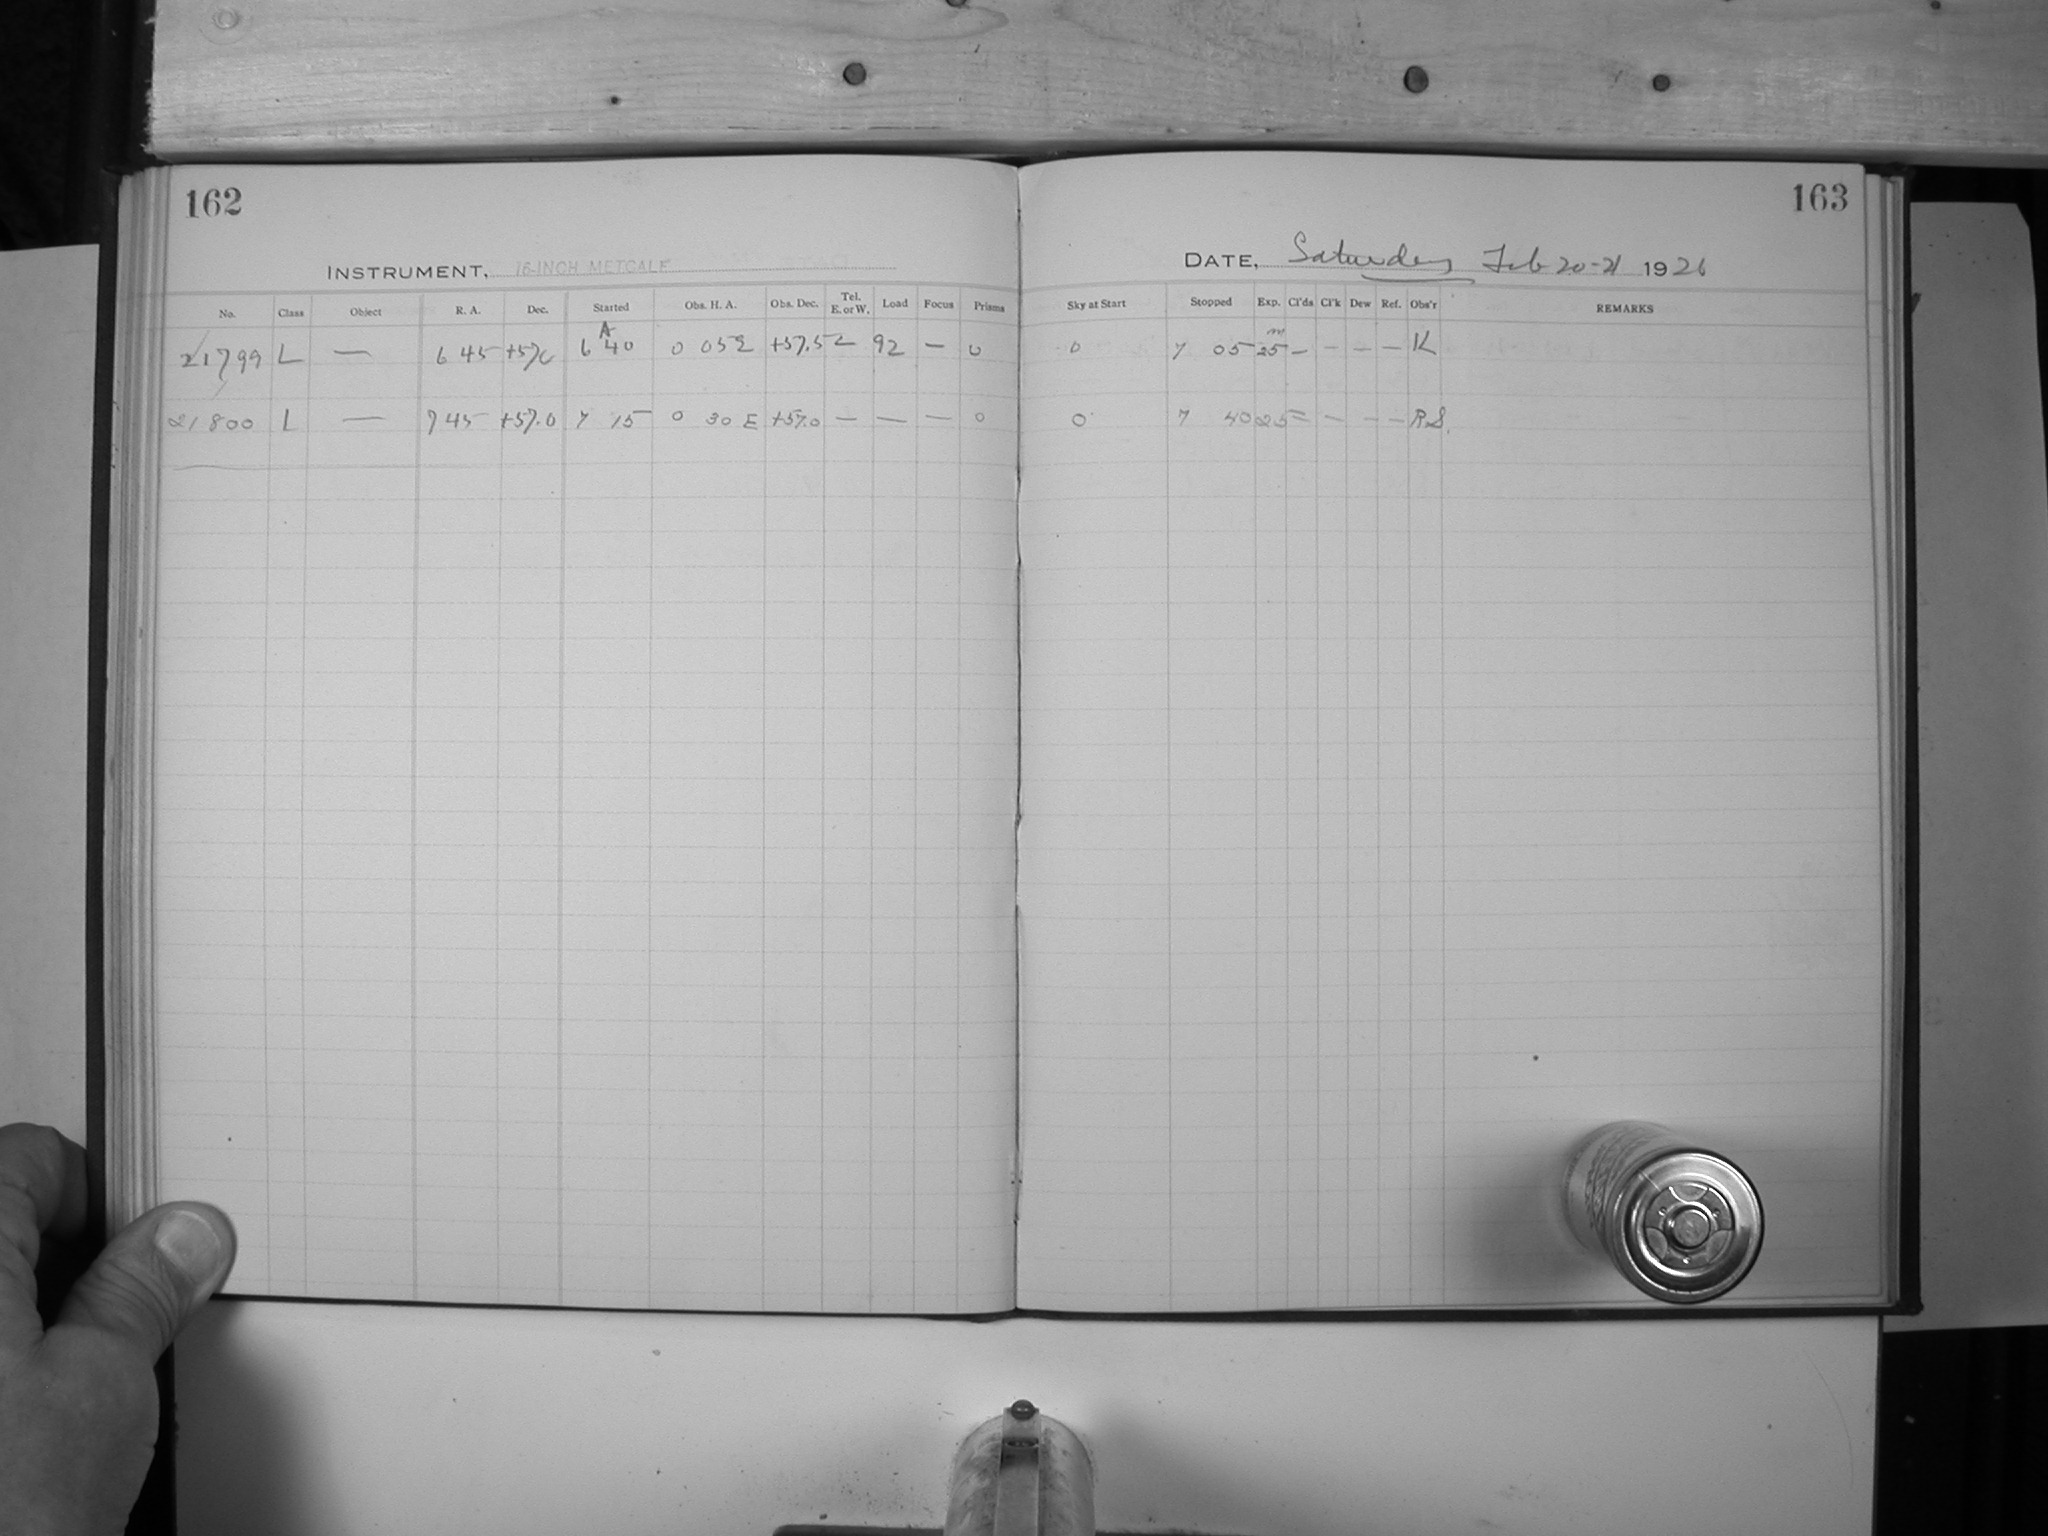 162
163
INSTRUMENT, 16-INCH METCALF
DATE, Saturday Feb 20-21 1926
No. Class Object R. A. Dec. Started Obs. H. A. Obs. Dec. Tel. E. or W. Load Focus Prisms Sky at Start Stopped Exp. Cl'ds Cl'k Dew Ref. Obs'r REMARKS
21799 L — 6 45 6 40 0 05 E +57.5 — 92 — 0 0 7 05 25 m — — — — K
21800 L — 7 45 +57.0 7 15 0 30 E +57.0 — — — 0 0 7 40 25 = — — — RS.